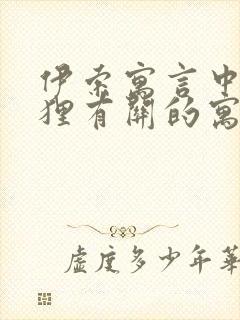 伊索寓言中
狸有關的寓
虛度多少年華